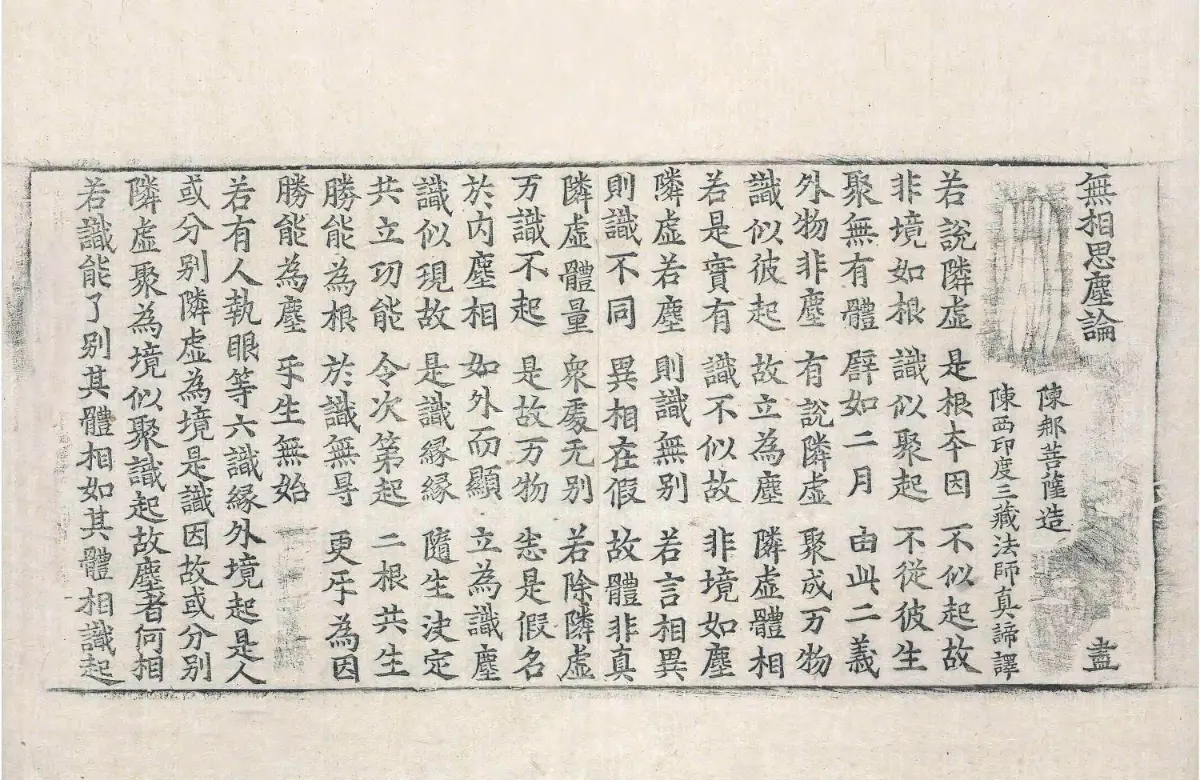 無相思塵論 盡
陳那菩薩造
陳西印度三藏法師真諦譯
若說隣虛 是根夲因 不似起故
非境如根 識似聚起 不從彼生
聚無有體 譬如二月 由此二義
外物非塵 有說隣虛 聚成万物
識似彼起 故立為塵 隣虛體相
若是實有 識不似故 非境如塵
隣虛若塵 則識無別 若言相異
則識不同 異相在假 故體非真
隣虛體量 衆處无別 若除隣虛
万識不起 是故万物 悉是假名
於內塵相 如外而顯 立為識塵
識似現故 是識緣緣 隨生決定
共立功能 令次第起 二根共生
勝能為根 於識無㝵 更互為因
勝能為塵 互生無始
若有人執眼等六識緣外境起是人
或分別隣虛為境是識因故或分別
隣虛聚為境似聚識起故塵者何相
若識能了別其體相如其體相識起